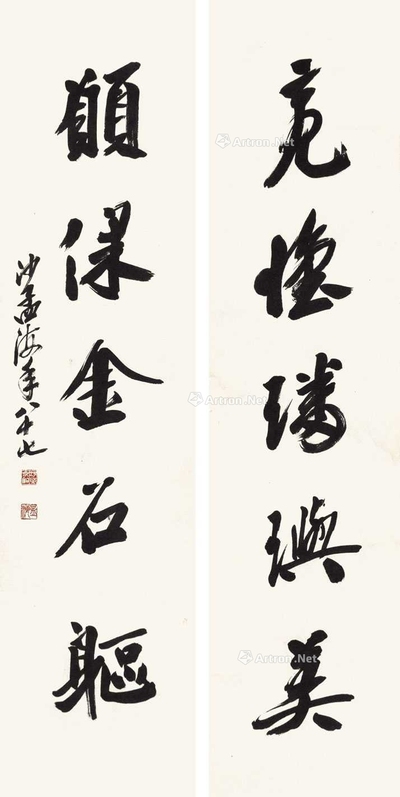 亮懷璠璵美
願保金石軀
沙孟海年八十七
Artron.Net
Artron.Net
Artron.Net